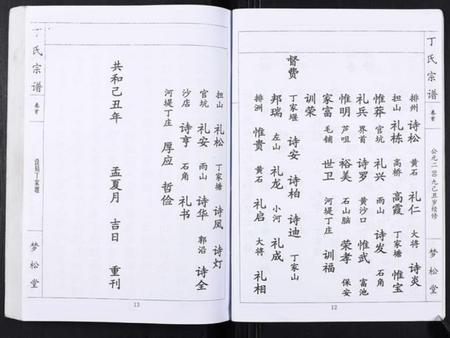 丁氏宗谱
卷首
公元二〇〇九己丑岁续修
梦松堂
排州 诗松 黄石 礼仁 大将 诗炎
担山 礼栋 高桥 高霞 丁家塘 惟宝
官坑 惟莽 官坑 礼兴 雨山 诗发 石角
惟明 礼兵 界首 诗罗 黄沙口 惟武 富池
家富 芦咀 裕美 石山脑 荣孝 保安
训荣 毛铺 世卫 河堤丁庄 训福
督费
丁家堰 诗安 诗柏 诗迪 丁家山
邦瑞 左山 礼龙 小河 礼成
排洲 惟贵 黄石 礼启 大将 礼相
12
担山 礼松 丁家塘 诗凤 诗灯
官坑 礼安 雨山 诗华 郭沿 诗全
沙店 诗亨 石角 礼书
河堤丁庄 厚应 哲俭
共和己丑年 孟夏月 吉日 重刊
13
丁氏宗谱
卷首
梦松堂